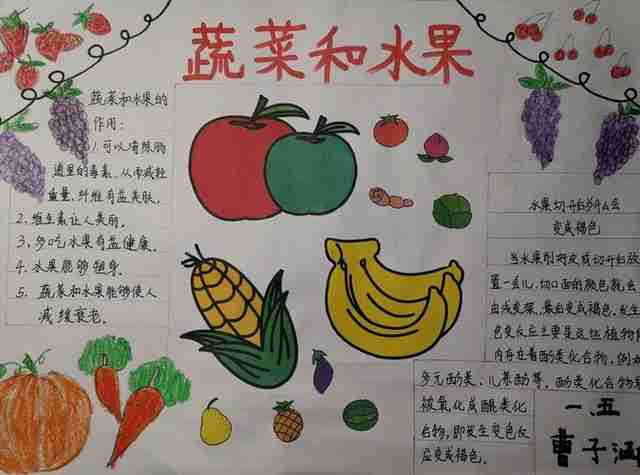 蔬菜和水果
蔬菜和水果的
作用:
1.可以清除肠
道里的毒素、从而减轻
重量,纤维有益美肤。
2.维生素让人美丽。
3.多吃水果有益健康。
4.水果能够独身。
5.蔬菜和水果能够使人
减缓衰老。
水果切开后为什么会
变成褐色
当水果削好皮或切开后放
置一会儿,切口面的颜色就会
由浅变深,最后变成褐色。发生
色变反应主要是这些植物体
内存在着酚类化合物,例如
多元酚类、儿茶酚等。酚类化合物
被氧化成醌类化
合物,即发生变色反
应变成褐色。
一、五
曹子涵